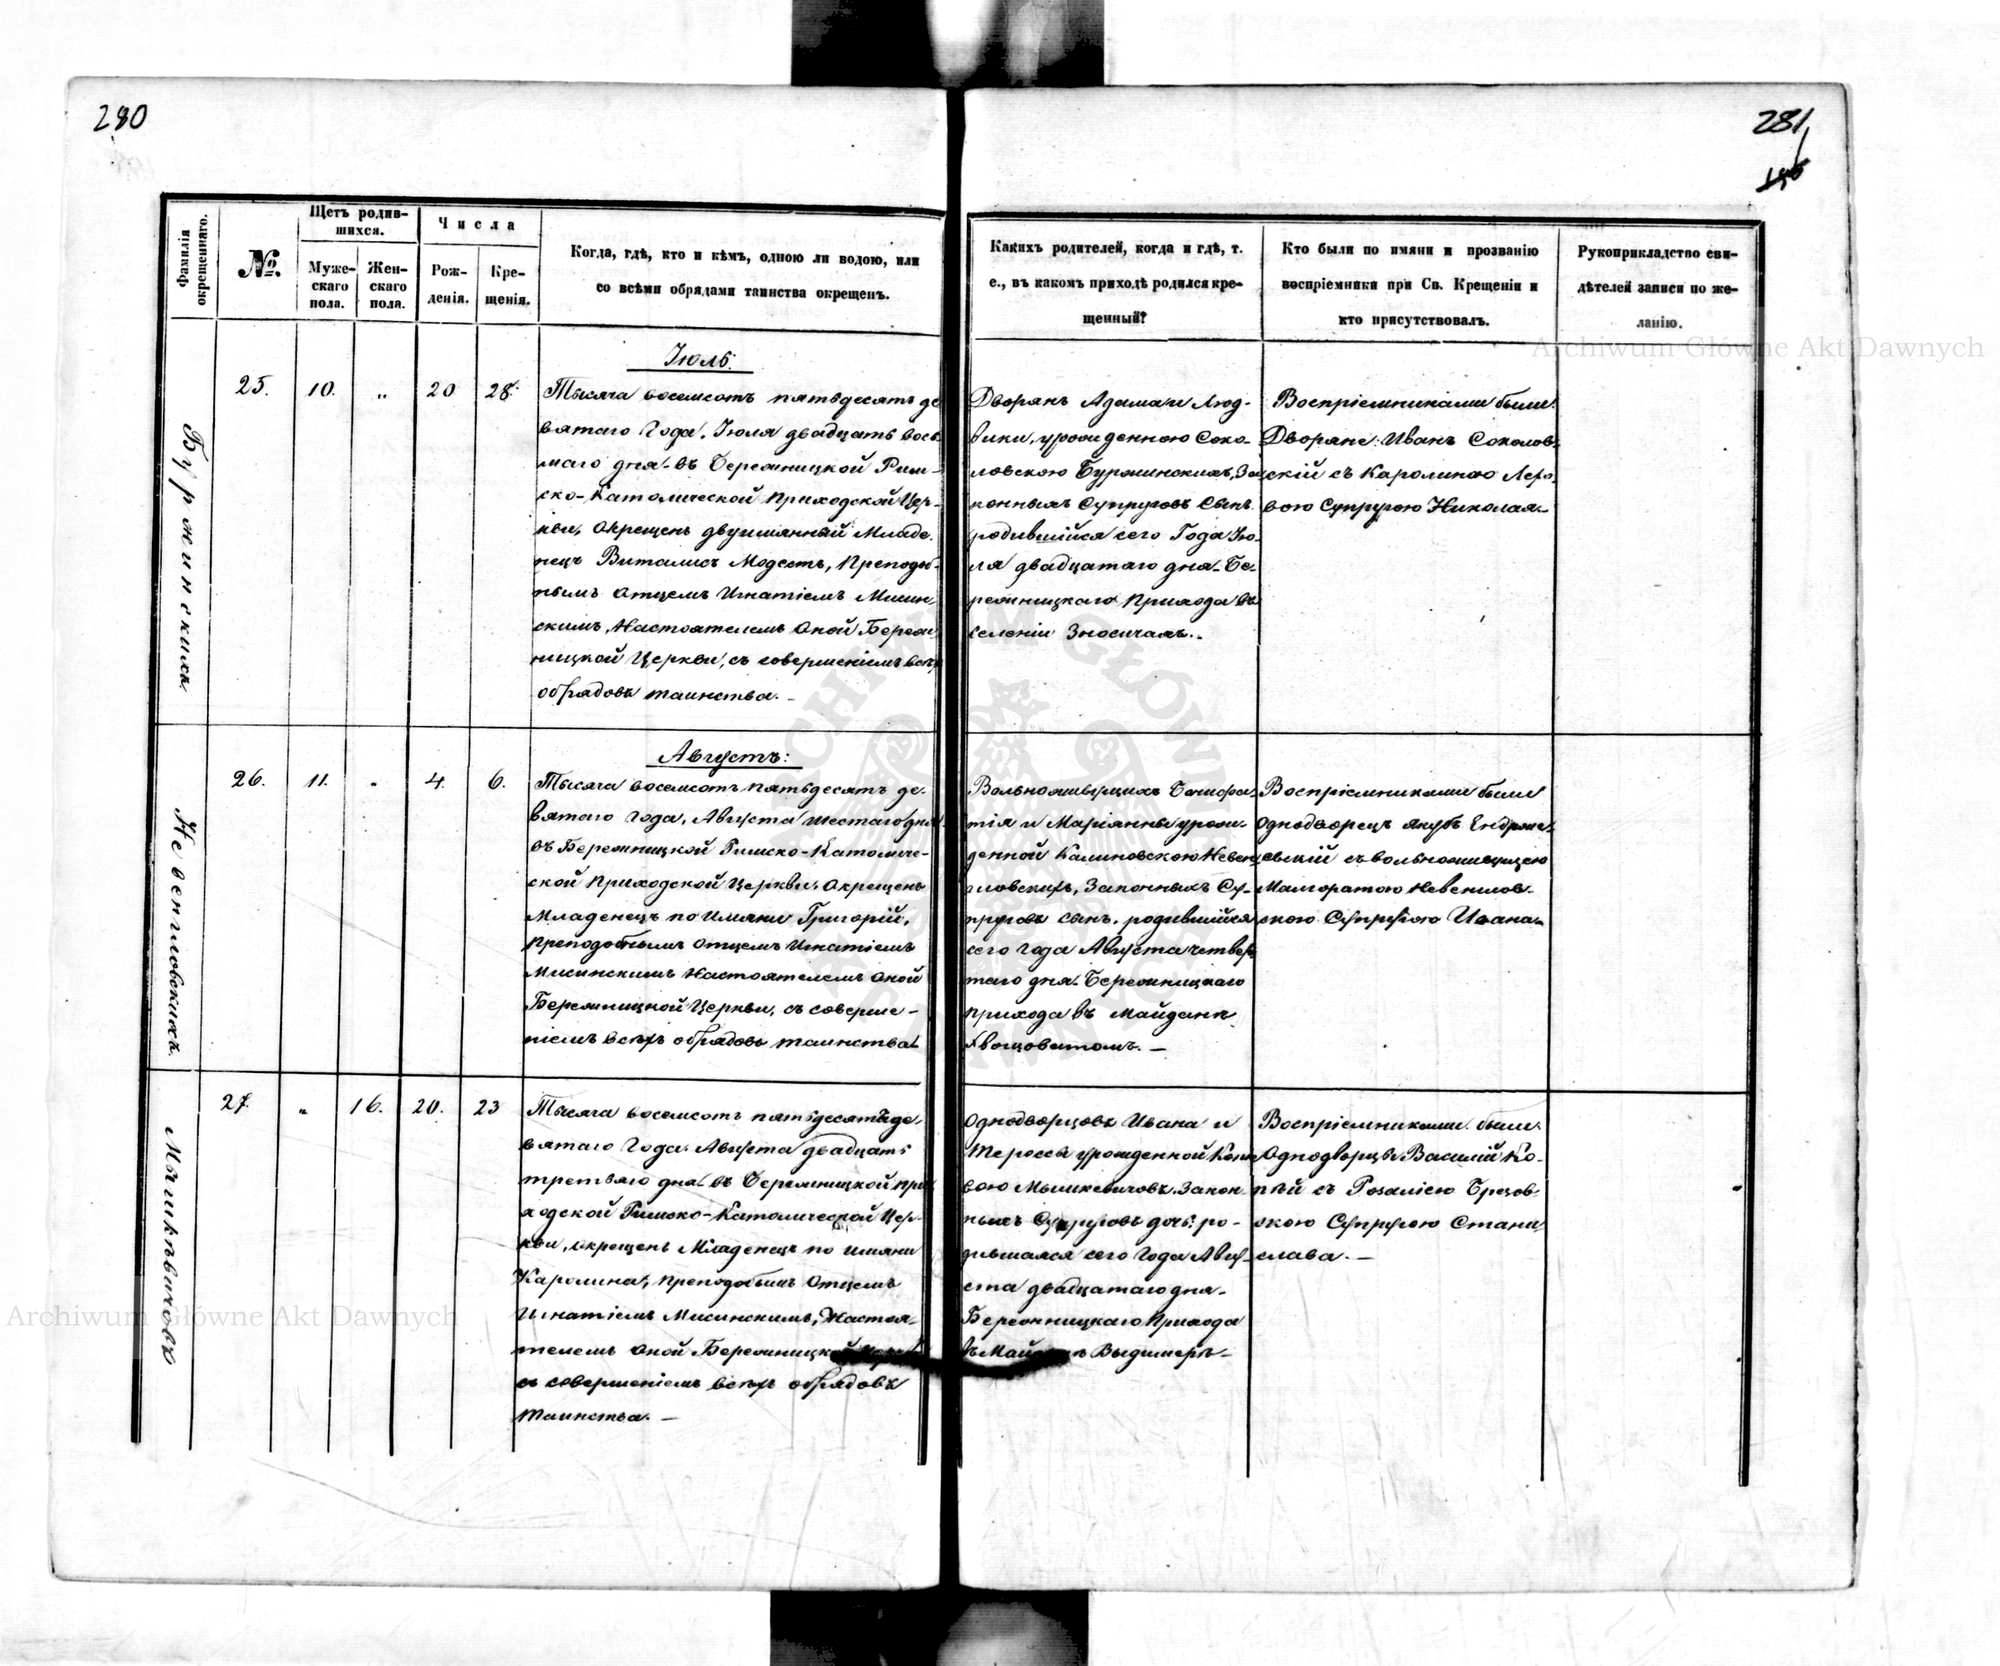 280
281
Фамилія окрещеннаго.
№.
Щетъ родив-
шихся.
Муже-
скаго
пола.
Жен-
скаго
пола.
Числа
Рож-
денія.
Кре-
щенія.
Когда, гдѣ, кто и кѣмъ, одною ли водою, или
со всѣми обрядами таинства окрещенъ.
Какихъ родителей, когда и гдѣ, т.
е., въ какомъ приходѣ родился кре-
щенный?
Кто были по имяни и прозванію
воспріемники при Св. Крещеніи и
кто присутствовалъ.
Рукоприкладство сви-
дѣтелей записи по же-
ланію.
Буржинскихъ
25.
10.
"
20
28.
Іюль:
Тысяча восемсотъ пятьдесятъ де
вятаго Года, Іюля двадцать вось
маго дня въ Бережницкой Рим-
ско-Католической Приходской Цер-
кви, Окрещенъ двуимянный Младе-
нецъ Виталисъ Модестъ, Преподоб-
нымъ Отцемъ Игнатіемъ Мисин-
скимъ, Настоятелемъ Оной Береж
ницкой Церкви, съ совершеніемъ всѣхъ
обрядовъ таинства.
Дворянъ Адама и Люд-
вики, урожденною Соко-
ловскою Буржинскихъ, За
конныхъ Супруговъ Сынъ
родившійся сего Года Ію-
ля двадцатаго дня Бе-
режницкаго Прихода въ
селеніи Зносичахъ.
Воспріемниками были
Дворяне: Иванъ Соколов-
скій съ Каролиною
вою Супругою Николая
Невенгловскихъ.
26.
11.
"
4.
6.
Августъ:
Тысяча восемсотъ пятьдесятъ де-
вятаго Года, Августа шестаго дня
въ Бережницкой Римско-Католиче-
ской Приходской Церкви, Окрещенъ
Младенецъ по Имяни Григорій,
Преподобнымъ Отцемъ Игнатіемъ
Мисинскимъ Настоятелемъ Оной
Бережницкой Церкви, съ соверше-
ніемъ всѣхъ обрядовъ таинства
Вольноживущихъ Бонифа-
тія и Маріанны урож-
денной Калиновскою Невен
гловскихъ, Законныхъ Су-
пруговъ сынъ, родившійся
сего Года Августа четвер
таго дня Бережницкаго
прихода въ Майданѣ
Хвощоватомъ.
Воспріемниками были
Однодворецъ Якубъ Ендрже-
евскій съ вольноживущею
Малгоратою Невенглов-
скою Супругою Ивана
Мышкѣвичовъ
27.
"
16.
20.
23
Тысяча восемсотъ пятьдесятъ де-
вятаго Года Августа двадцать
третьяго дня въ Бережницкой При
ходской Римско-Католической Цер-
кви, Окрещенъ Младенецъ по имяни
Каролина, Преподобнымъ Отцемъ
Игнатіемъ Мисинскимъ, Настоя-
телемъ Оной Бережницкой
съ совершеніемъ всѣхъ обрядовъ
таинства.
Однодворцовъ Ивана и
Терессы урожденной
вою Мышкевичовъ Закон
ныхъ Супруговъ дочь ро-
дившаяся сего Года Авгу-
ста двадцатаго дня
Бережницкаго Прихода
въ Выдимеръ
Воспріемниками были
Однодворцы Василій Ко-
пѣй съ Розаліею Брезов-
скою Супругою Стани
слава.
Archiwum Główne Akt Dawnych
Archiwum Główne Akt Dawnych